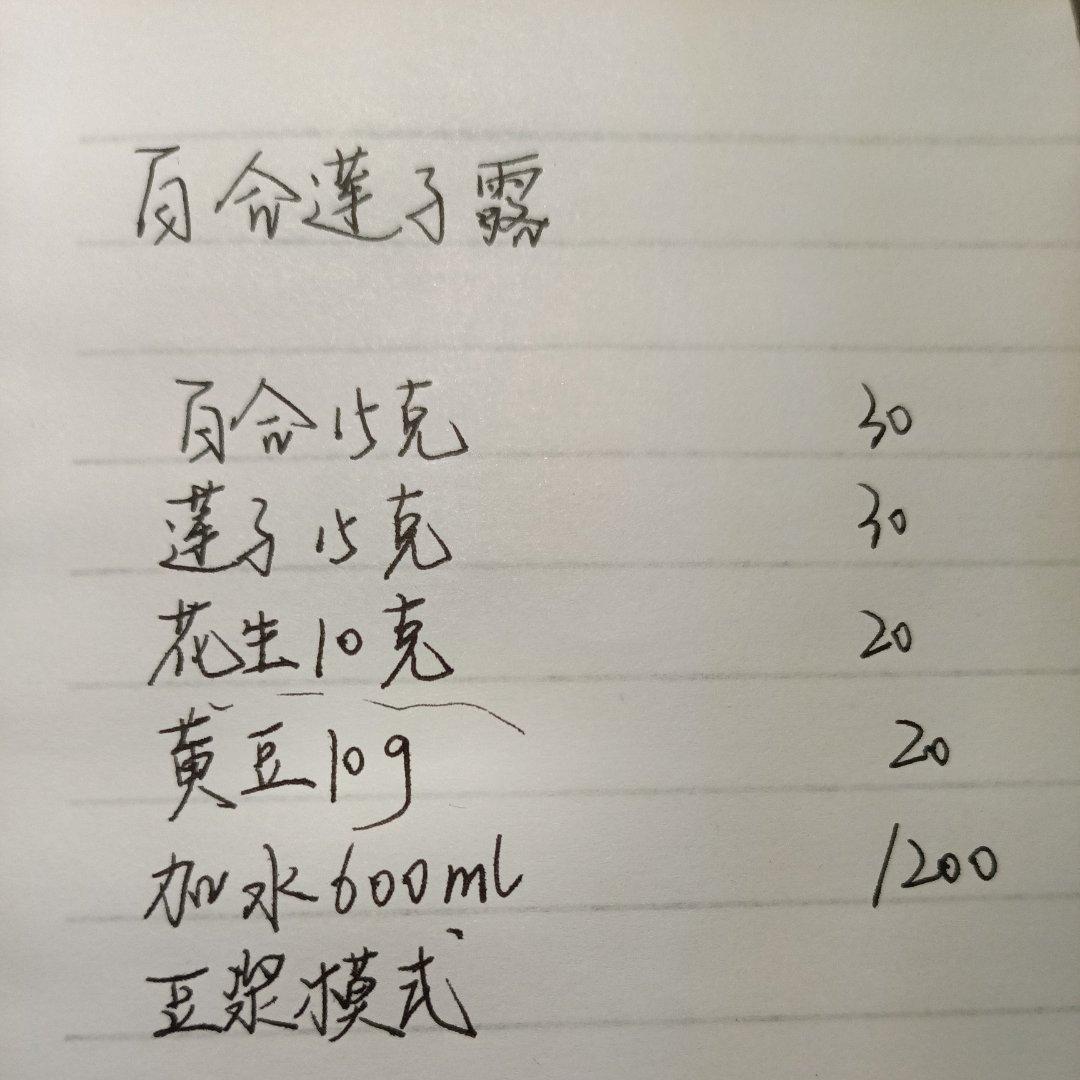 百合莲子露
百合15克 30
莲子15克 30
花生10克 20
黄豆10g 20
加水600ml 1200
豆浆模式